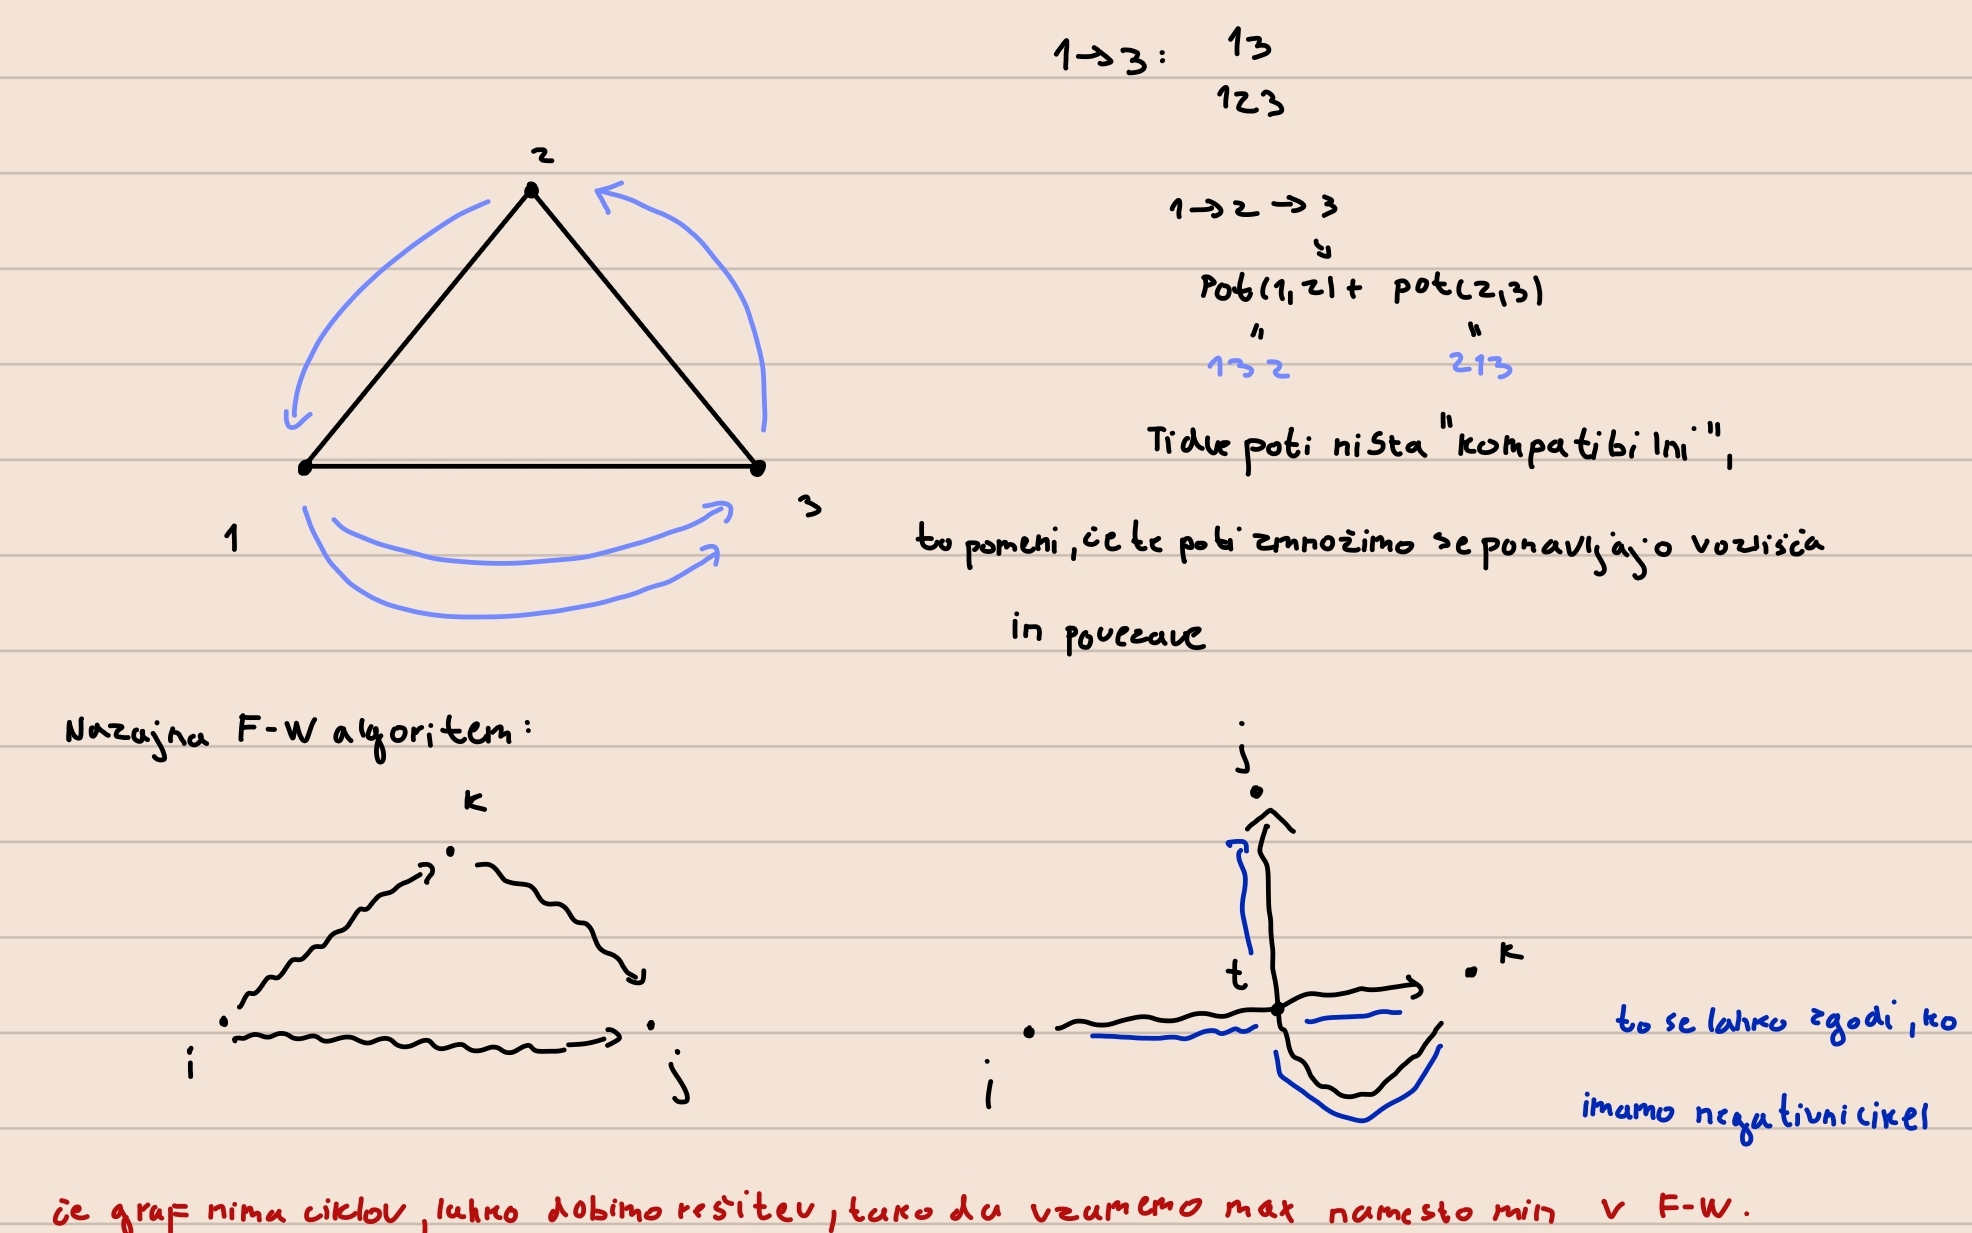 1→3: 13
123
2
1→2→3
↘
Pot(1,2)+ pot(2,3)
" "
132 213
Ti dve poti nista "kompatibilni",
1
3
to pomeni, če te poti zmnožimo se ponavljajo vozlišča
in povezave
Nazaj na F-W algoritem:
k
j
t
k
i
j
i
to se lahko zgodi, ko
imamo negativni cikel
če graf nima ciklov, lahko dobimo rešitev, tako da vzamemo max namesto min v F-W.